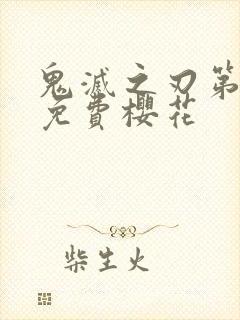 鬼滅之刃第
免費櫻花
柴生火